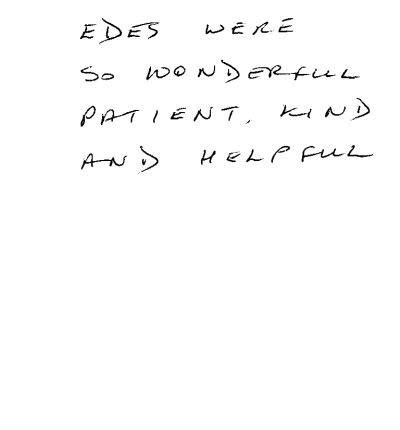 EDES WERE
SO WONDERFUL
PATIENT, KIND
AND HELPFUL